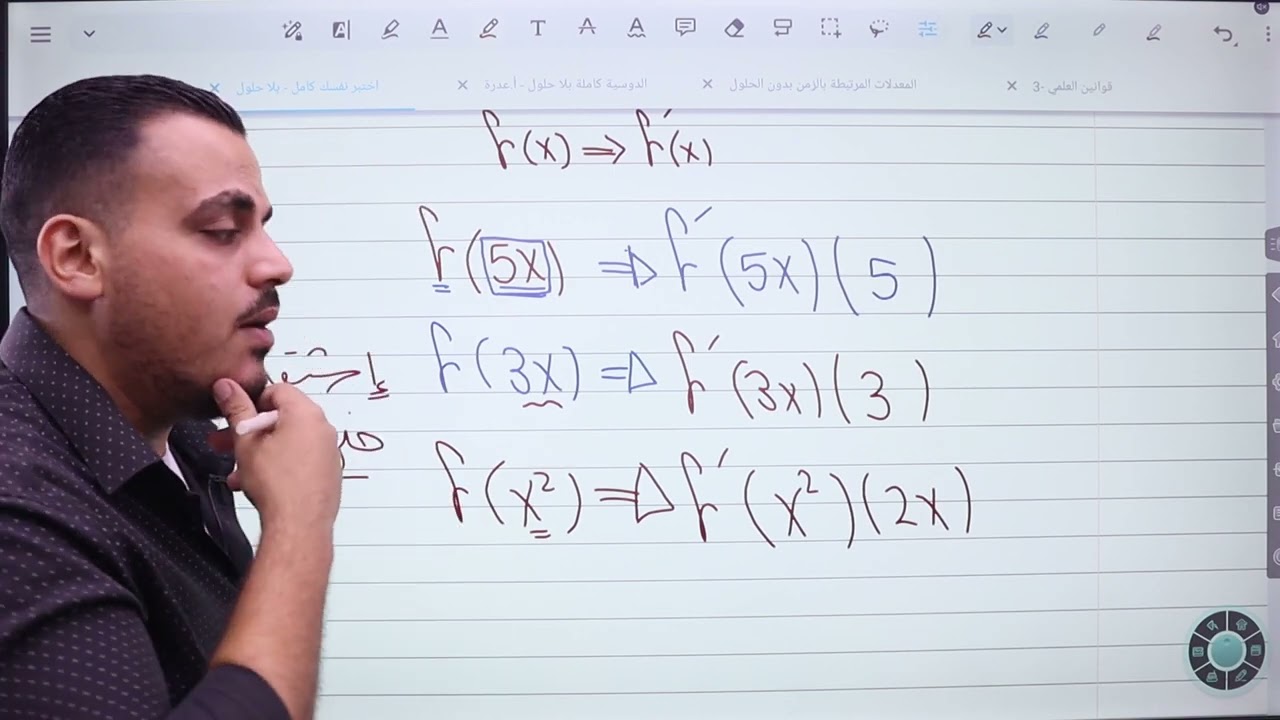 اختبر نفسك كامل - بلا حلول
الدوسية كاملة بلا حلول - أ.عدرة
المعدلات المرتبطة بالزمن بدون الحلول
قوانين العلمي -3
f(x) ⇒ f′(x)
f(5x) ⇒ f′(5x)(5)
f(3x) ⇒ f′(3x)(3)
f(x²) ⇒ f′(x²)(2x)